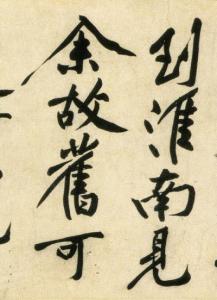 到淮南見
余故舊可